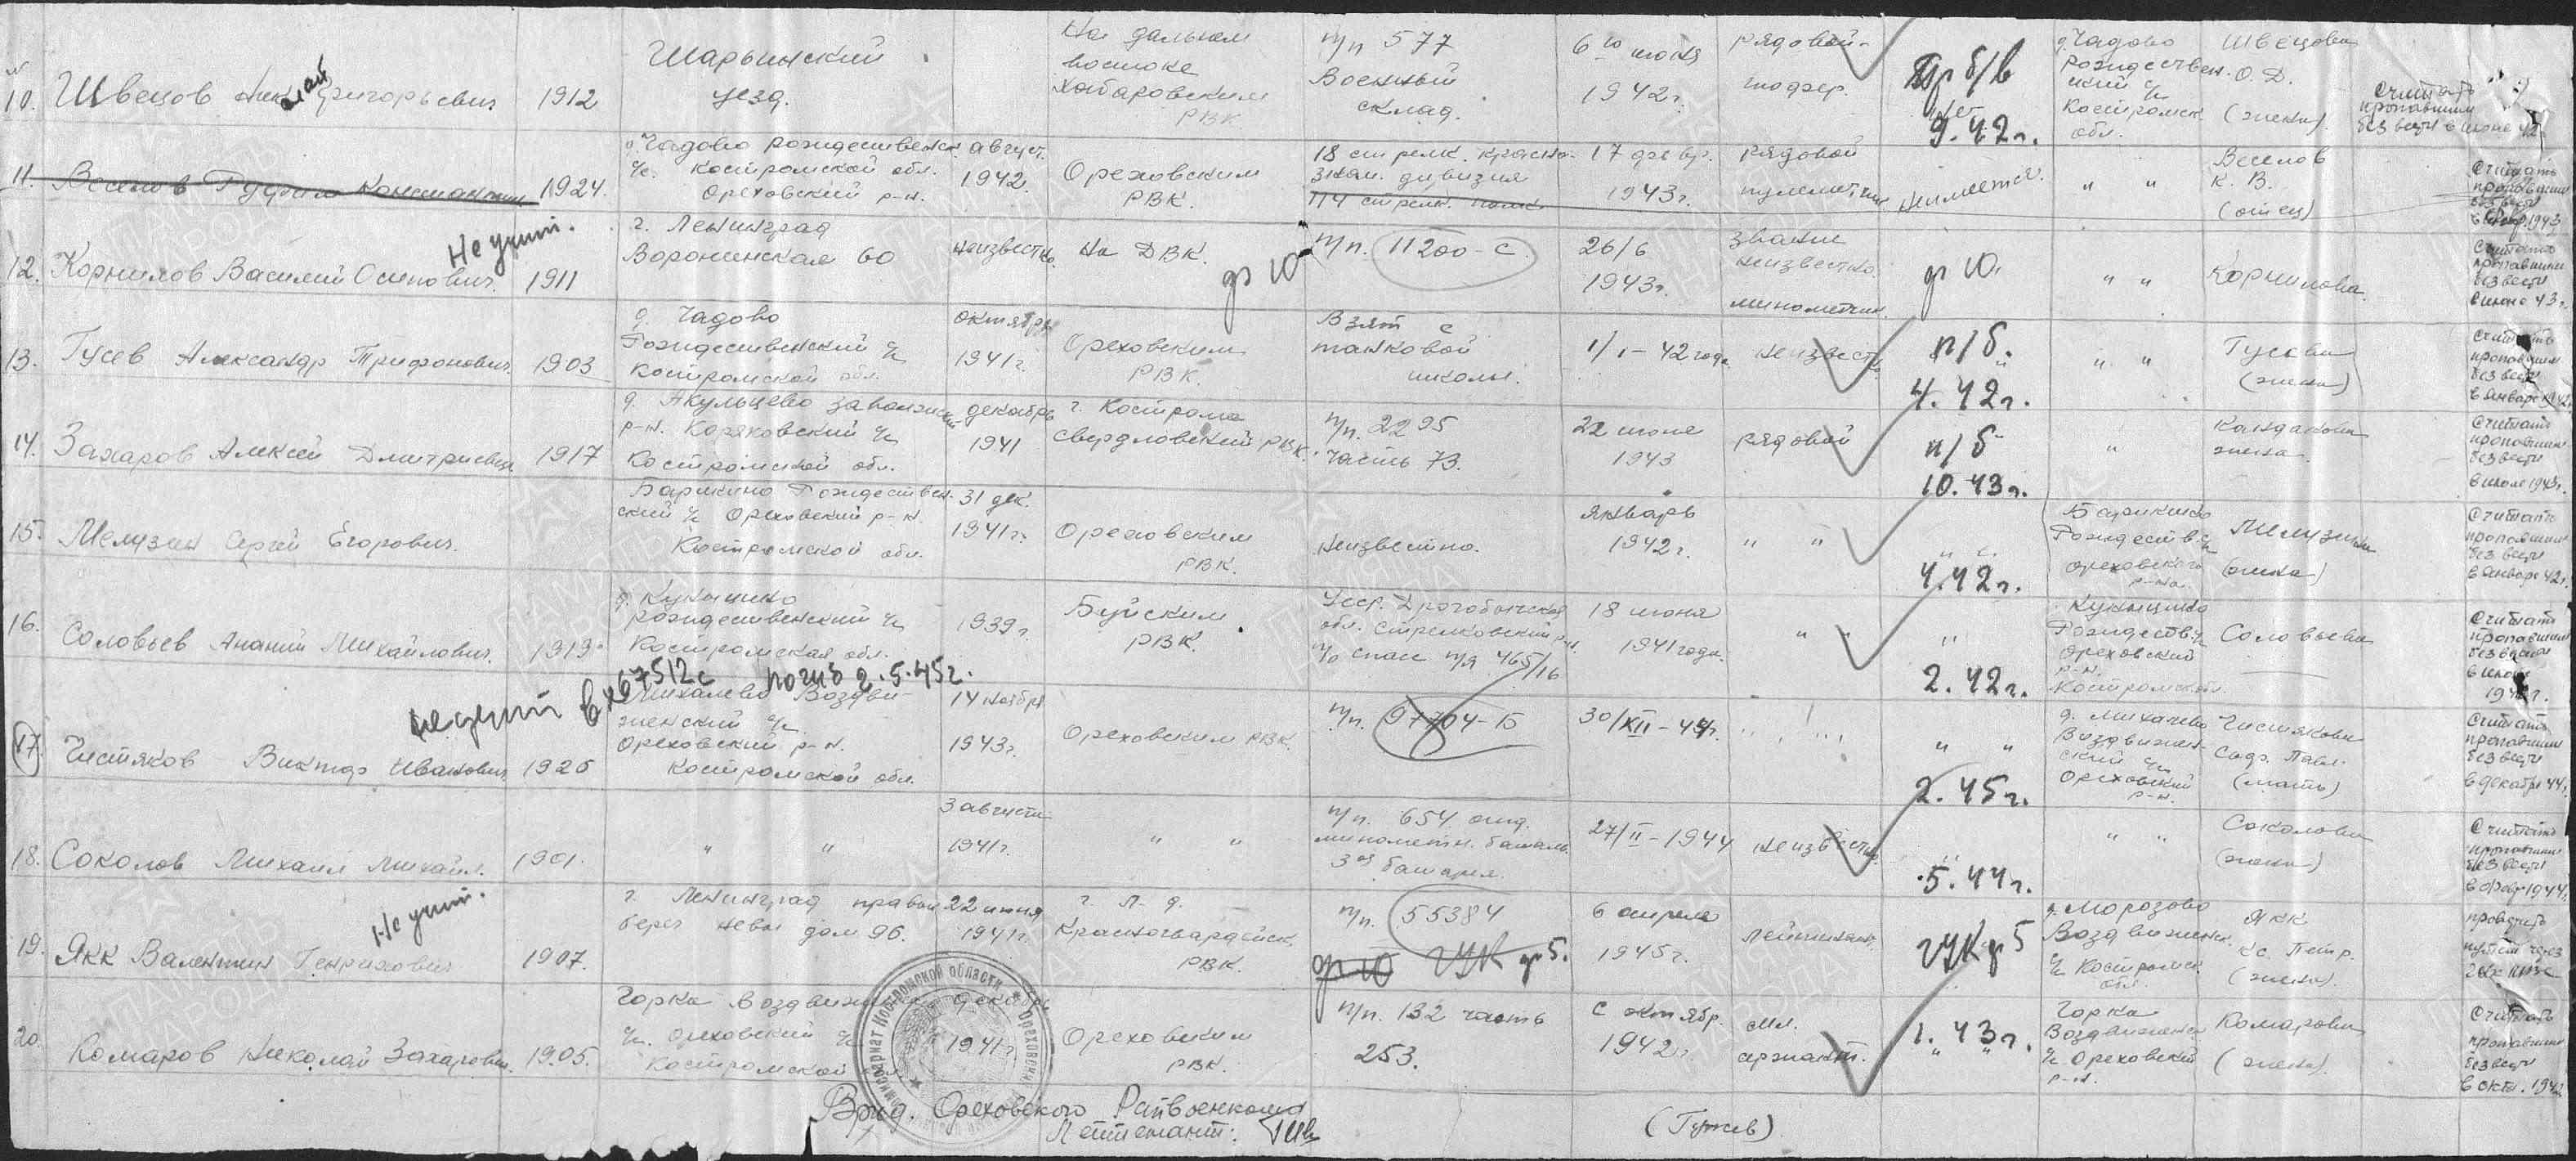 10. Швецов Николай Григорьевич 1912
Шарьинский
уезд.
На дальнем
востоке
Хабаровским
РВК
п/п 577
Военный
склад.
6го июня
1942г.
рядовой-
шофер.
Пр б/в
9.42г.
д. Чадово
рождествен-
ский с/с
Костромск.
обл.
Швецова
О. Д.
(жена).
Считать
пропавшим
без вести в июне 42
11. Веселов Константин 1924.
д. Чадово рождественск.
с/с. Костромской обл.
Ореховский р-н.
август.
1942.
Ореховским
РВК.
18 стрелк. красно-
знам. дивизия
114 стрелк. полк
17 февр.
1943г.
рядовой
пулеметчик
не имеется.
" "
Веселов
К. В.
(отец)
Считать
пропавшим
без вести
в февр. 1943
12. Корнилов Василий Осипович. 1911
Не учит.
г. Ленинград
Воронинская 60
неизвестно.
На ДВК.
др 10
п/п. 11200-С.
26/6
1943г.
звание
неизвестно.
минометчик.
др 10.
" "
Корнилова.
Считать
пропавшим
без вести
в июне 43г.
13. Гусев Александр Трифонович. 1903
д. Чадово
Рождественский с/с
Костромской обл.
октябрь
1941г.
Ореховским
РВК.
Взят с
танковой
школы.
1/I-42 года.
неизвестно
п/б.
4.42г.
" "
Гусева
(жена)
Считать
пропавшим
без вести
в январе 1942
14. Захаров Алексей Дмитриевич. 1917
д. Акульцево заволжский
р-н. Коряковский с/с
Костромской обл.
декабрь
1941
г. Кострома
Свердловский РВК.
п/п. 2295
часть 73.
22 июля
1943
рядовой
п/б
10.43г.
"
Кандакова
жена.
Считать
пропавшим
без вести
в июле 1943г.
15. Мелузин Сергей Егорович.
Барыкино Рождествен-
ский с/с Ореховский р-н.
Костромской обл.
31 дек.
1941г.
Ореховским
РВК.
Неизвестно.
январь
1942г.
" "
" "
4.42г.
Барыкино
Рождеств. с/с
Ореховского
р-на.
Мелузина
(жена)
Считать
пропавшим
без вести
в январе 42г.
16. Соловьев Ананий Михайлович. 1919.
д. Куницино
рождественский с/с
Костромская обл.
1939г.
Буйским
РВК.
Усср. Дрогобычская
обл. стрелковский р-н.
п/о спас п/я 465/16
18 июня
1941 года.
" "
"
2.42г.
Куницино
Рождеств. с/с
Ореховский
р-н.
Костромск.
Соловьева
Считать
пропавшим
без вести
в июне
194 г.
не учит вх 67512с погиб 2.5.45г.
17. Чистяков Виктор Иванович 1926
Михалево Воздви-
женский с/с
Ореховский р-н.
Костромской обл.
14 ноябр.
1943г.
Ореховским РВК.
п/п. 97704-Б
30/XII-44г.
" "
" "
2.45г.
д. Михалево
Воздвижен-
ский с/с
Ореховский
р-н.
Чистякова
Павл.
(мать)
Считать
пропавшим
без вести
в декабре 44г.
18. Соколов Михаил Михайл. 1901.
" "
3 августа
1941г.
" "
п/п. 654 отд.
минометн. батальон.
3оя батарея.
27/II-1944
неизвестно.
"
5.44г.
" "
Соколова
(жена)
Считать
пропавшим
без вести
в февр 1944г.
Не учит.
19. Якк Валентин Генрихович 1907.
г. Ленинград правый
берег невы дом 96.
22 июня
1941г.
г. Л-д.
Красногвардейск.
РВК.
п/п. 55384
др 10 ГУК др 5.
6 апреля
1945г.
лейтенант.
ГУК др 5
д. Морозово
Воздвиженск.
с/с Костромск.
обл.
Якк
Кс. Петр.
(жена).
20. Комаров Николай Захарович. 1905.
Горка Воздвиженск
с/с. Ореховский
Костромской
декабрь
1941г.
Ореховским
РВК.
п/п. 132 часть
253.
С октябр.
1942г.
мл.
сержант.
1.43г.
" "
Горка
Воздвиженск
с/с Ореховский
р-н.
Комарова
(жена).
Считать
пропавшим
без вести
в окт. 1942
Врид. Ореховского Райвоенкома
Лейтенант:
(Гужев)